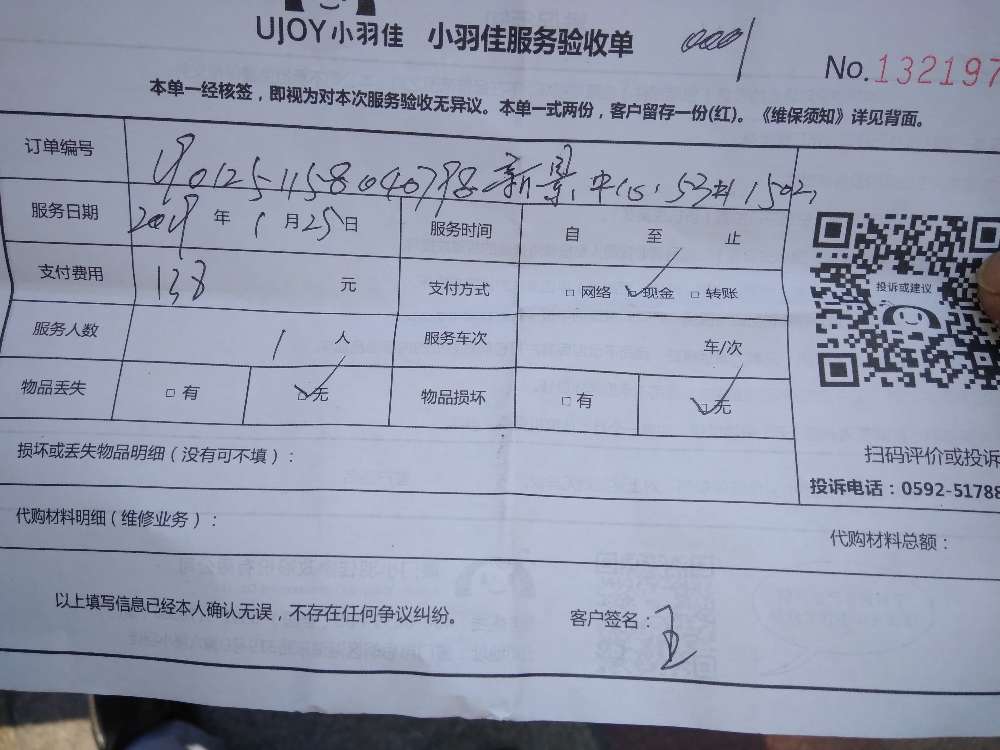 UJOY小羽佳 小羽佳服务验收单 0001
No.132197
本单一经核签，即视为对本次服务验收无异议。本单一式两份，客户留存一份(红)。《维保须知》详见背面。
订单编号 新景 中心 53# 1502
服务日期 2019 年 1 月 25 日 服务时间 自 至 止
支付费用 138 元 支付方式 □ 网络 □ 现金 □ 转账
服务人数 1 人 服务车次 车/次
物品丢失 □ 有 □ 无 物品损坏 □ 有 □ 无
投诉或建议
损坏或丢失物品明细（没有可不填）：
扫码评价或投诉
投诉电话：0592-51788
代购材料明细（维修业务）：
代购材料总额：
以上填写信息已经本人确认无误，不存在任何争议纠纷。 客户签名：